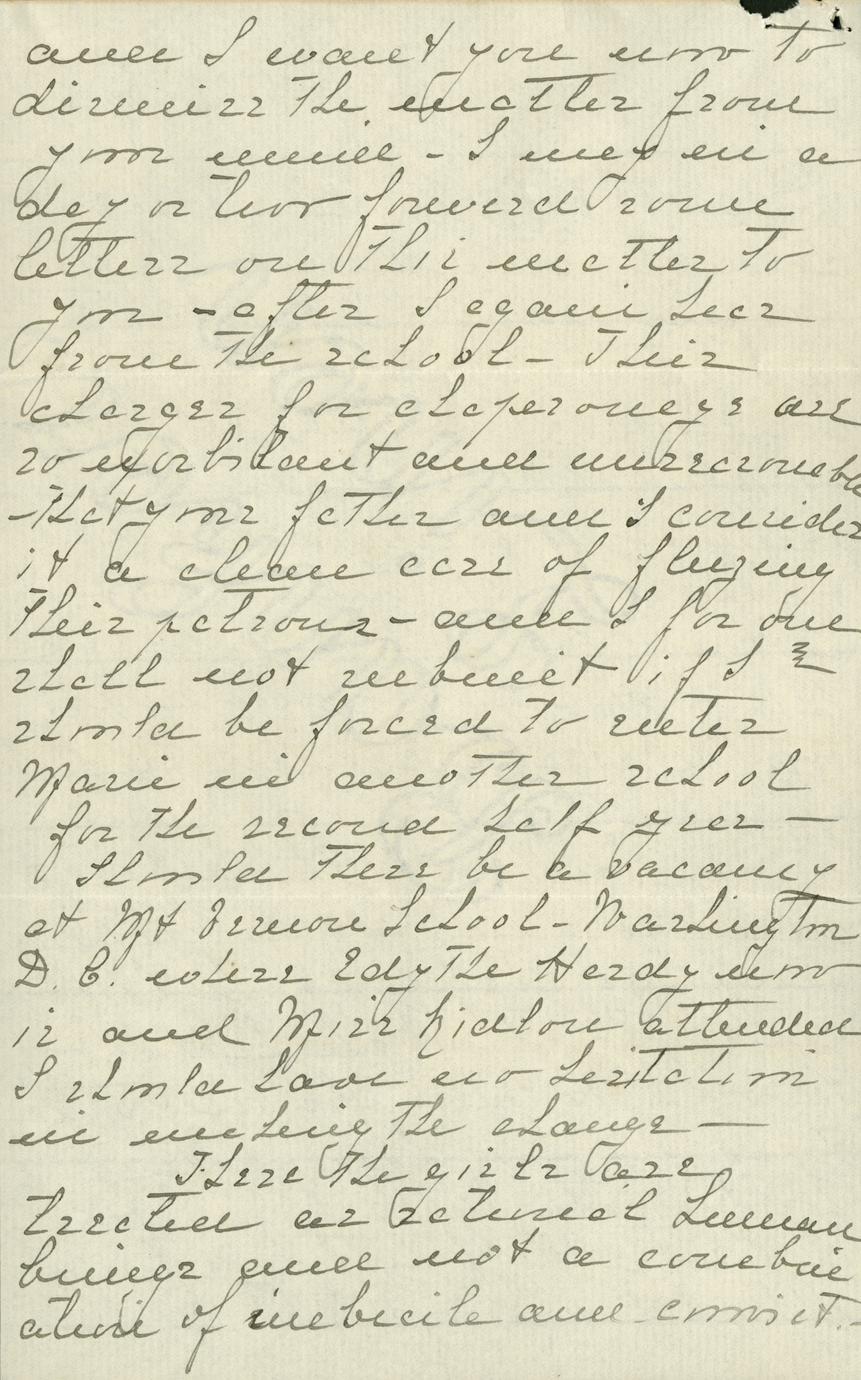 and I want you now to
dismiss the matter from
your mind - I may in a
day or two forward some
letters on this matter to
you - after I again hear
from the school - Their
charges for chaperonage are
so exorbitant and unreasonable
- that your father and I consider
it a clean case of fleecing
their patrons - and I for one
shall not submit if I
should be forced to enter
Marie in another school
for the second half year -
Should there be a vacancy
at Mt Vernon School - Washington
D. C. where Edythe Hardy now
is and Miss Ridlon attended
I should have no hesitation
in making the change -
There the girls are
treated as rational human
beings and not a combin
ation of imbecile and convict. -